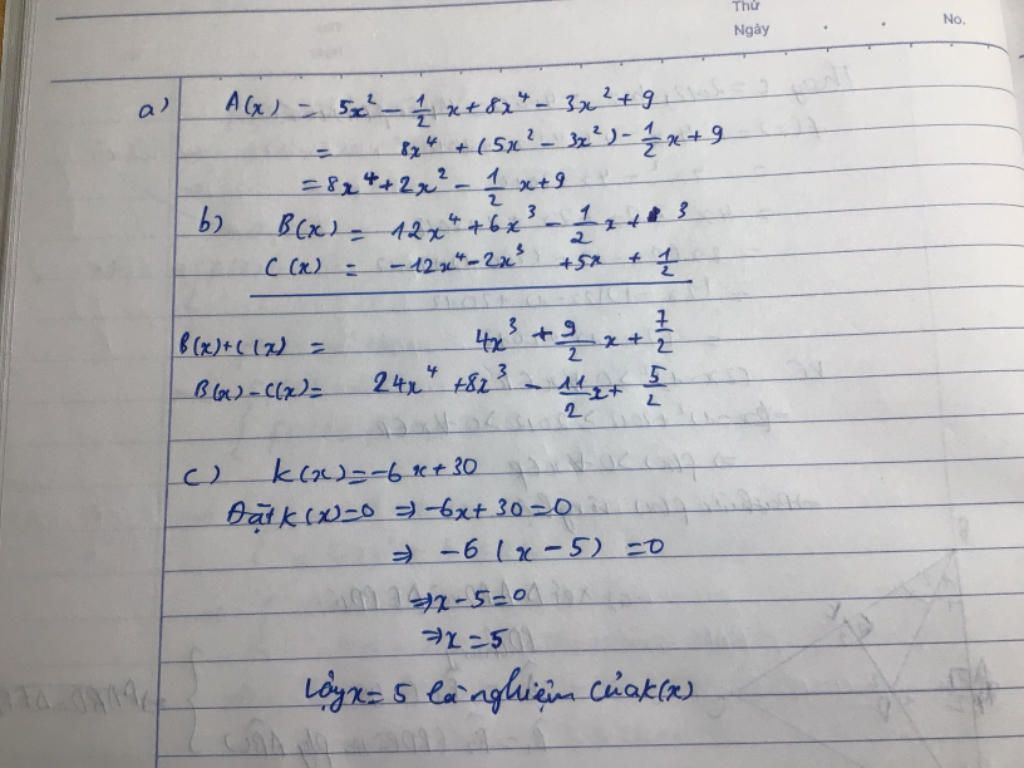 Thứ
Ngày . . No.
a) A(x) = 5x² - 1/2 x + 8x⁴ - 3x² + 9
= 8x⁴ + (5x² - 3x²) - 1/2 x + 9
= 8x⁴ + 2x² - 1/2 x + 9
b) B(x) = 12x⁴ + 6x³ - 1/2 x + 3
C(x) = -12x⁴ - 2x³ + 5x + 1/2
B(x) + C(x) = 4x³ + 9/2 x + 7/2
B(x) - C(x) = 24x⁴ + 8x³ - 11/2 x + 5/2
c) K(x) = -6x + 30
Đặt K(x) = 0 ⇒ -6x + 30 = 0
⇒ -6 (x - 5) = 0
⇒ x - 5 = 0
⇒ x = 5
Vậy x = 5 là nghiệm của K(x)